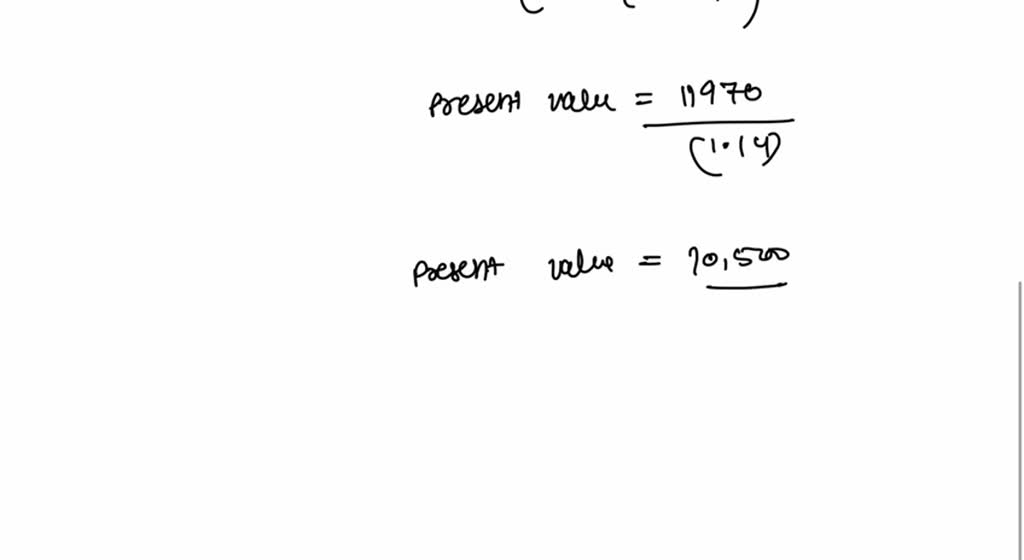 present value = 11970
(1.14)
present value = 10,500